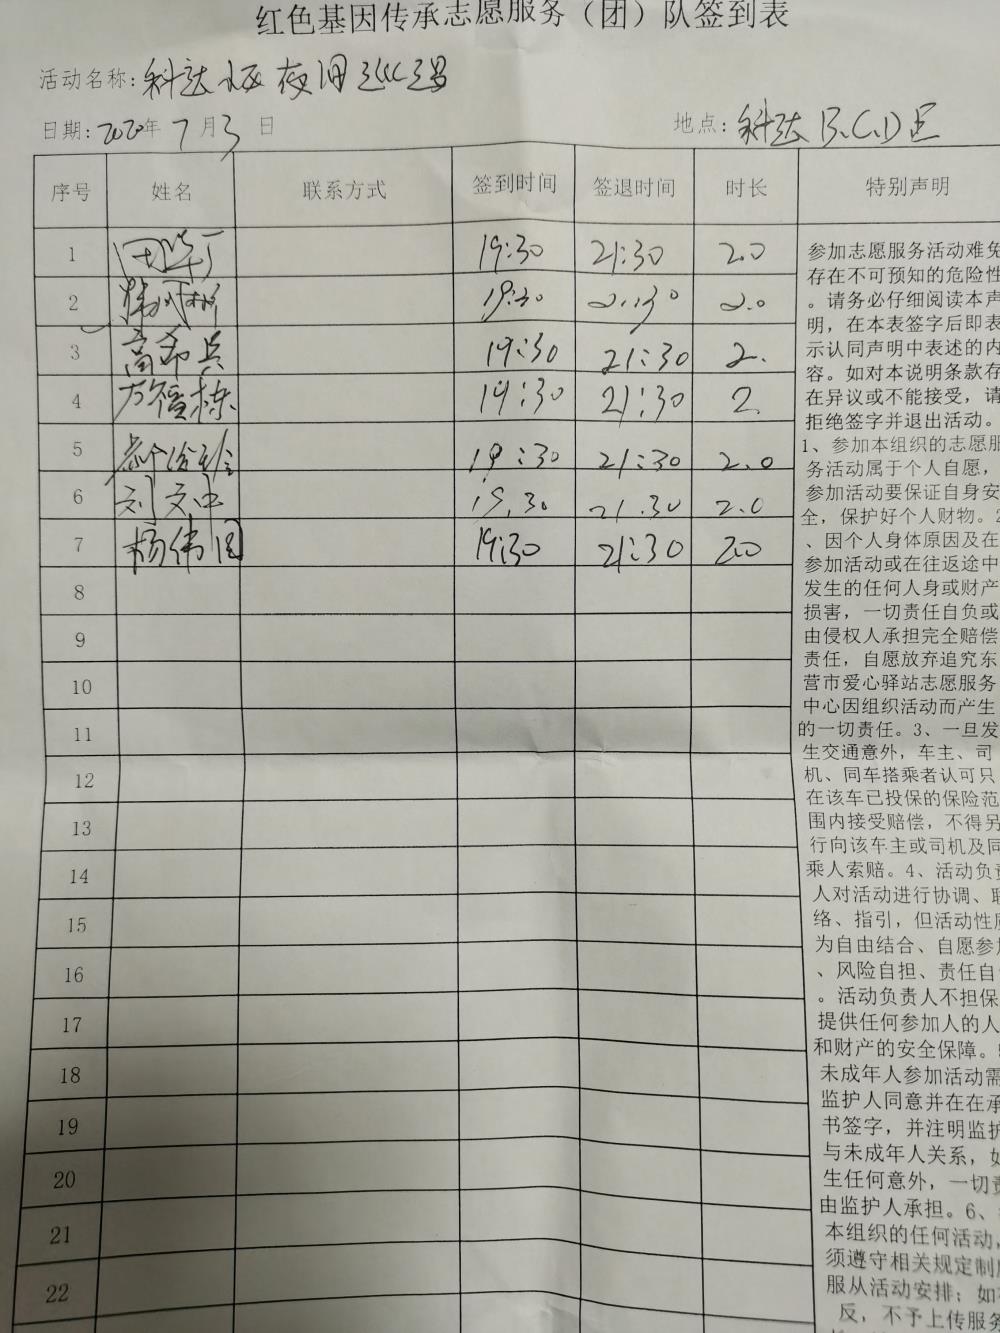 红色基因传承志愿服务（团）队签到表
活动名称：科达小区夜间巡逻
日期：2020年7月3日 地点：科达B.C.D区
序号 姓名 联系方式 签到时间 签退时间 时长 特别声明
1 19:30 21:30 2.0
2 19:30 21:30 2.0
3 高希兵 19:30 21:30 2.
4 方福栋 19:30 21:30 2
5 19:30 21:30 2.0
6 刘文中 19.30 21.30 2.0
7 杨伟国 19:30 21:30 2.0
8
9
10
11
12
13
14
15
16
17
18
19
20
21
22
参加志愿服务活动难免
存在不可预知的危险性
。请务必仔细阅读本声
明，在本表签字后即表
示认同声明中表述的内
容。如对本说明条款存
在异议或不能接受，请
拒绝签字并退出活动。
1、参加本组织的志愿服
务活动属于个人自愿，
参加活动要保证自身安
全，保护好个人财物。2
、因个人身体原因及在
参加活动或在往返途中
发生的任何人身或财产
损害，一切责任自负或
由侵权人承担完全赔偿
责任，自愿放弃追究东
营市爱心驿站志愿服务
中心因组织活动而产生
的一切责任。3、一旦发
生交通意外，车主、司
机、同车搭乘者认可只
在该车已投保的保险范
围内接受赔偿，不得另
行向该车主或司机及同
乘人索赔。4、活动负责
人对活动进行协调、联
络、指引，但活动性质
为自由结合、自愿参加
、风险自担、责任自
。活动负责人不担保
提供任何参加人的人
和财产的安全保障。
未成年人参加活动需
监护人同意并在在承
书签字，并注明监护
与未成年人关系，如
生任何意外，一切责
由监护人承担。6、
本组织的任何活动，
须遵守相关规定制度
服从活动安排；如
反，不予上传服务